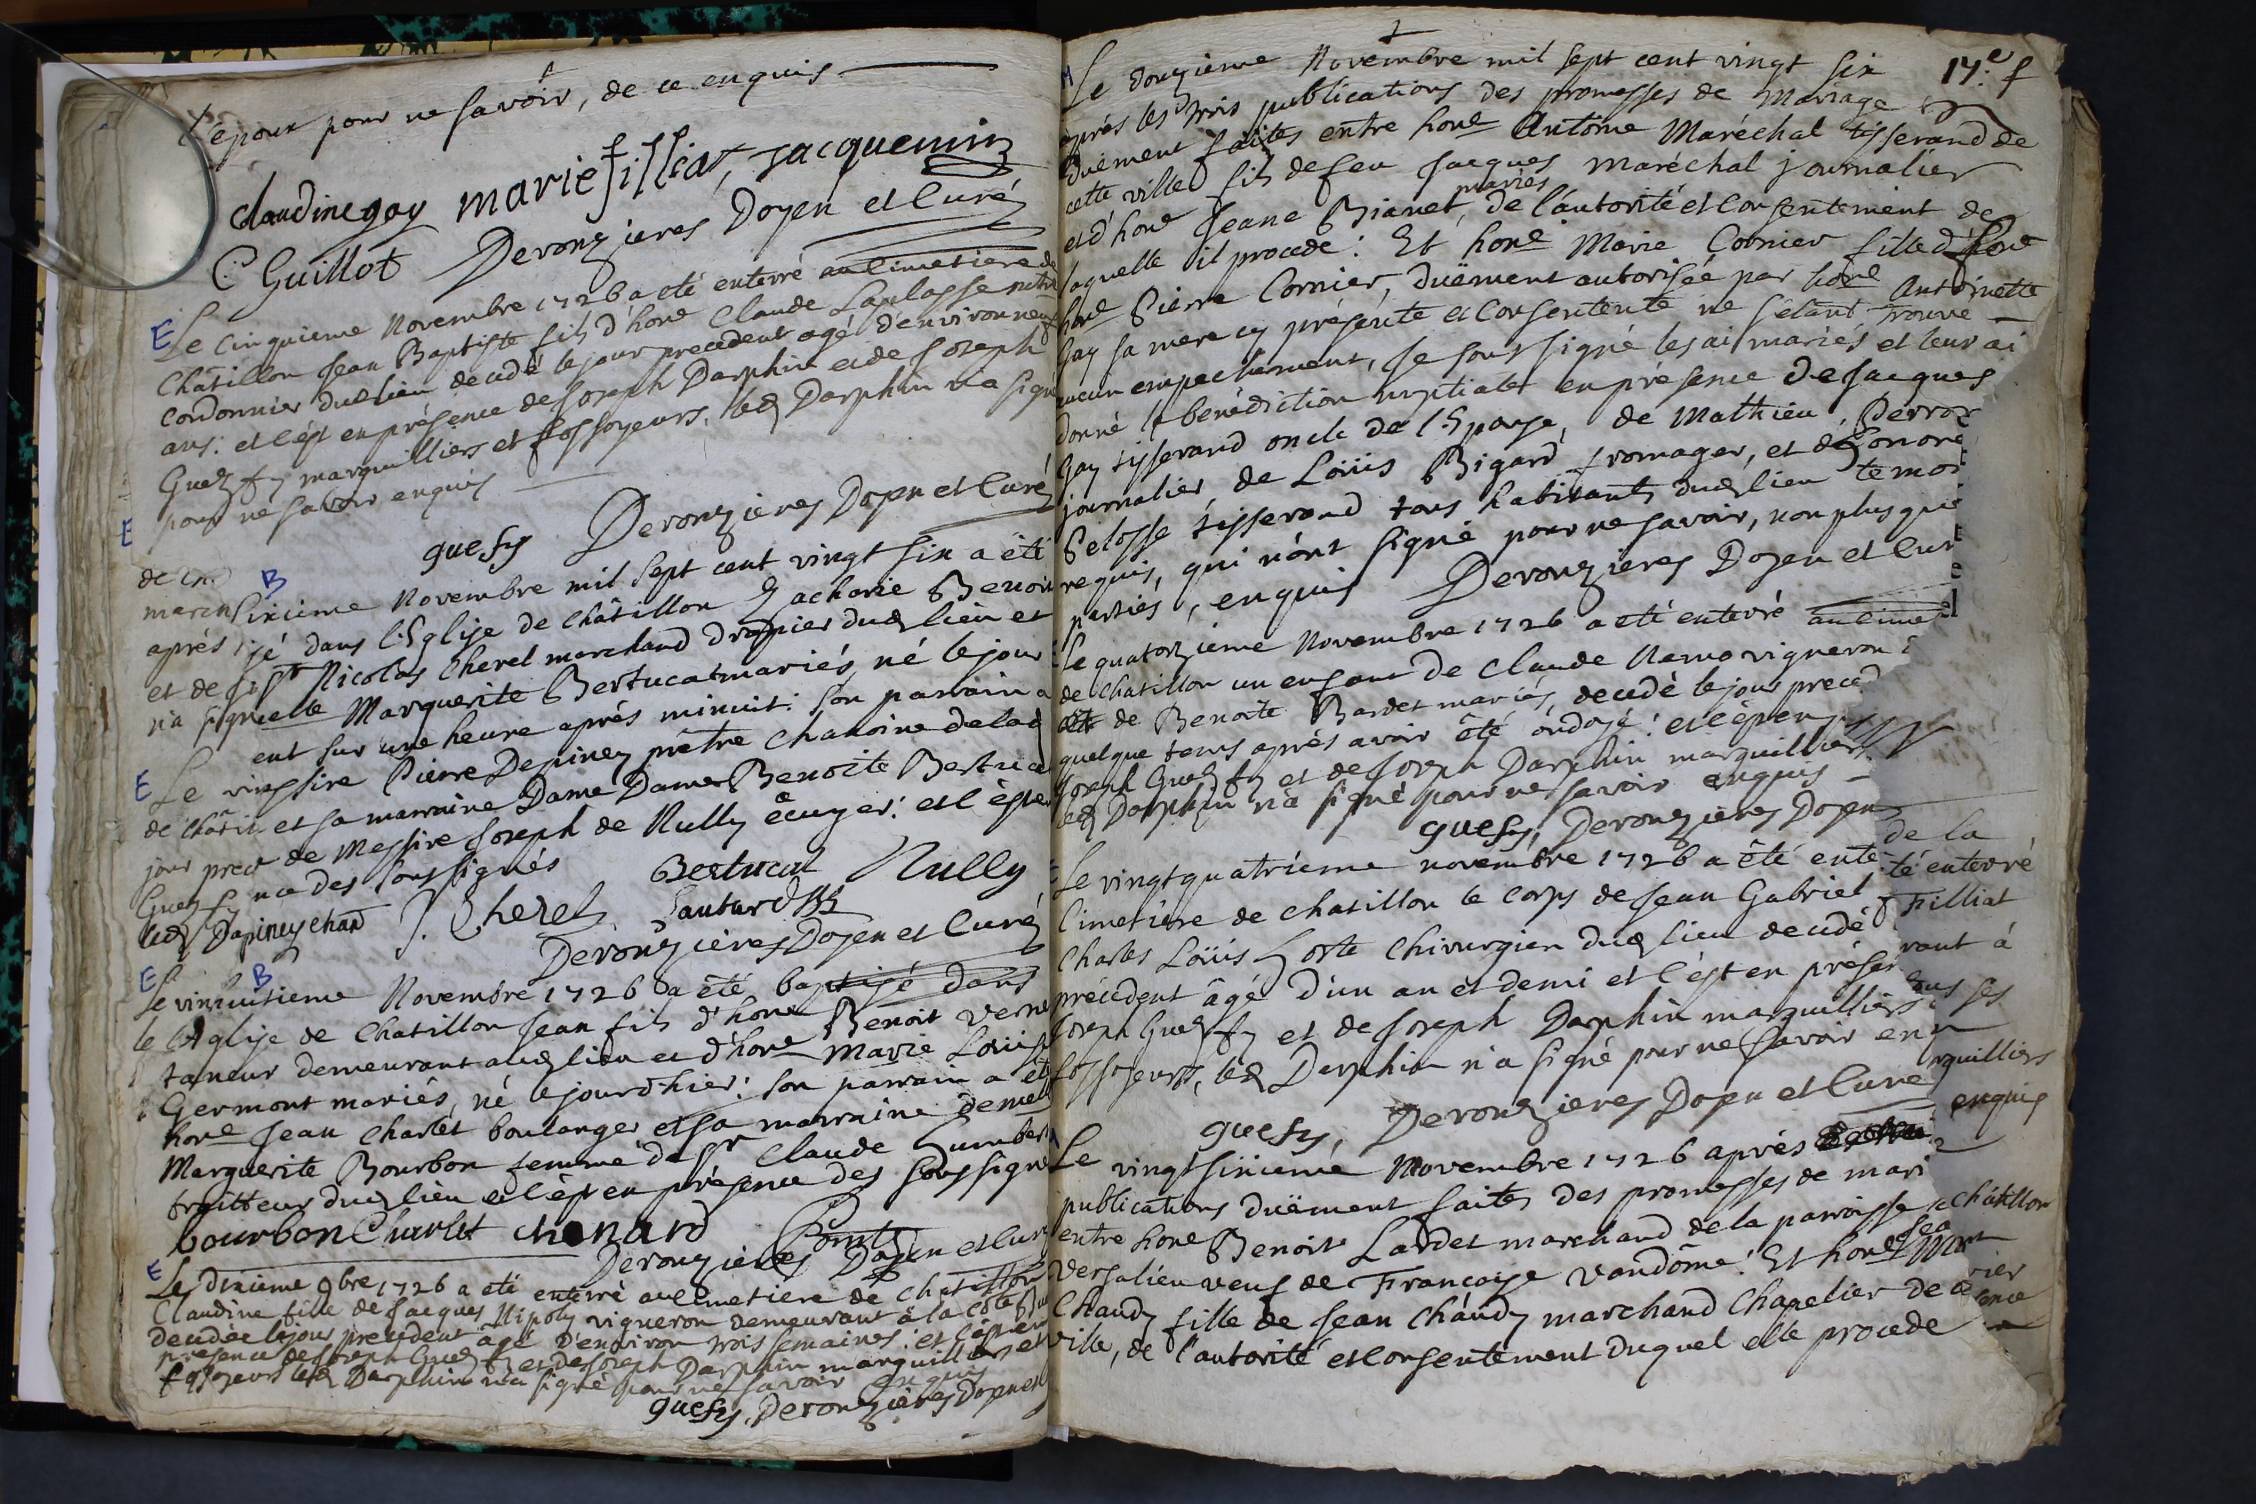 L'epoux pour ne savoir, de ce enquis
claudine gay marie filliat, jacquemin
C Guillot Deronzieres Doyen et Curé
E Le Cinquieme Novembre 1726 a eté enterré au Cimetiere de
Châtillon Jean Baptiste fils d'hone Claude Laplasse
Cordonnier dud lieu decedé le jour precedent agé d'environ neuf
ans: et c'est en présence de Joseph Darphin et de Joseph
Guez fy marguilliers et fossoyeurs, led Darphin n'a signé
pour ne savoir enquis
guesfy Deronzieres Doyen et Curé
E
B Sixieme Novembre mil sept cent vingt six a été
sé dans l'Eglise de Châtillon Zacharie Benoit
sr Nicolas Cherel marchand drapier dud lieu et
elle Marguerite Bertucat mariés, né le jour
ent sur une heure après minuit: son parrain a
ssire Pierre Depiney prêtre chanoine de lad
et sa marraine Dame Dame Benoite Bertucat
de Messire Joseph de Nully écuyer: et c'est en
nce des soussignés Bertucat Nully
Depiney chan J. Cherel
Deronzières Doyen et Curé
de
march
après
et de
n'a signé
E Le ving
de Chatil
jour prece
Guez fy
led
E B huitieme Novembre 1726 a été baptisé dans
l'Eglise de Chatillon Jean fils d'hone Benoit Verne
taneur demeurant aud lieu et d'hone Marie Louise
Germont mariés, né le jour d'hier: son parrain a été
hone Jean Charlet boulanger et sa marraine demelle
Marguerite Bourbon femme de sr Claude Humbert
traitteur dud lieu et c'est en présence des soussignés
bourbon Charlet chonard
Deronzieres Doyen et Curé
E Le dixieme 9bre 1726 a eté enterré au Cimetiere de Chatillon
Claudine fille de Jacques Nipoly vigneron demeurant à la Côte
decedée le jour precedent âgé d'environ trois semaines: et c'est en
presence de Joseph Guez fy et de Joseph Darphin marguilliers et
fossoyeurs led Darphin n'a signé pour ne savoir enquis
guesfy, Deronzières Doyen et
17e f
M Le douzieme Novembre mil sept cent vingt six
après les trois publications des promesses de Mariage
duëment faites entre hone Antoine Maréchal tisserand de
cette ville fils de feu Jacques Maréchal journalier
et d'hone Jeane Bianet, mariés, de l'autorité et Consentement de
laquelle il procede: Et hone Marie Cornier fille d'
hone Pierre Cornier, duëment autorisée par hone Antoinette
Gay sa mere cy présente et Consentente ne s'étant trouvé
aucun empechement, Je soussigné les ai mariés et leur ai
donné la benédiction nuptiale en présence de Jacques
Gay tisserand oncle de l'Epouse, de Mathieu Perror
journalier, de Loüis Bigard fromager, et d'Honoré
Pelosse tisserand tous habitants dud lieu temoi
requis, qui n'ont signé pour ne savoir, non plus que
parties, enquis Deronzieres Doyen et Cur
Le quatorzieme Novembre 1726 a eté enterré au cime
de chatillon un enfant de Claude Nemo vigneron
et de Benoite Bardet mariés, decedé le jour preced
quelque tems après avoir été ondoyé: et c'est en
Joseph Guez fy et de Joseph Darphin marguilliers
led Darphin n'a signé pour ne savoir enquis
guesfy, Deronzieres Doyen
Le vingtquatrieme novembre 1726 a été ente
Cimetiere de Chatillon le corps de Jean Gabriel
Charles Loüis Horte Chirurgien dud lieu decedé
précedent âgé d'un an et demi et c'est en présen
Joseph Guez fy et de Joseph Darphin marguilliers
fossoyeurs, led Darphin n'a signé pour ne savoir en
guesfy, Deronzieres Doyen et Curé
Le vingtsixieme Novembre 1726 après
publications duëment faites des promesses de mari
entre hone Benoit Lardet marchand de la parroisse
Versalieu veuf de Françoise Vandôme: Et hone
Chaudy fille de Jean Chaudy marchand Chapelier de ce
ville, de l'autorité et Consentement duquel elle procede
de la
té enterré
Filliat
vant à
ous ses
rguilliers
enquis
Châtillon